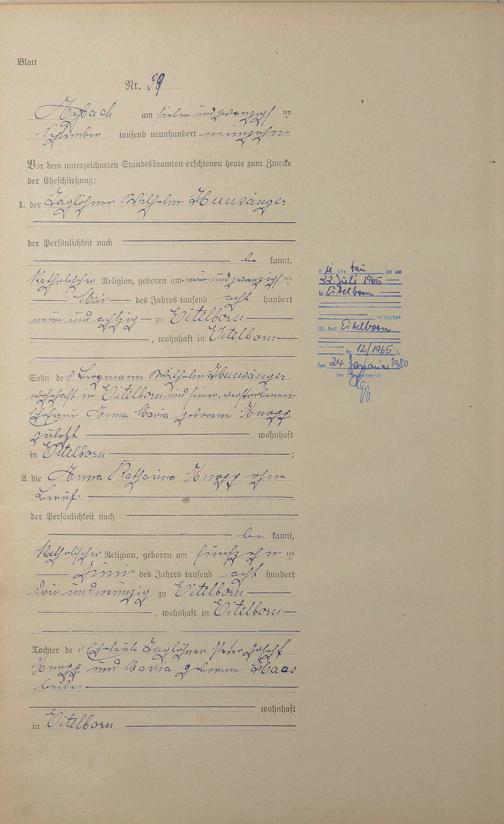 Blatt
Nr. 39
Arzbach am sieben und zwanzigsten
tausend neunhundert neunzehn
Vor dem unterzeichneten Standesbeamten erschienen heute zum Zwecke
der Eheschließung:
1. der Taglöhner Wilhelm Hunsänger
der Persönlichkeit nach
be kannt,
katholischer Religion, geboren am neun und zwanzigsten
Mai des Jahres tausend acht hundert
neun und achtzig zu Eitelborn
, wohnhaft in Eitelborn
Sohn des Bergmann Wilhelm Hunsänger
wohnhaft in Eitelborn und seiner verstorbenen
Ehefrau Anna Maria geborene Knopp
zuletzt wohnhaft
in Eitelborn ;
2. die Anna Katharina Knopp ohne
Beruf
der Persönlichkeit nach
be kannt,
katholischer Religion, geboren am fünfzehnten
Juni des Jahres tausend acht hundert
drei und neunzig zu Eitelborn
, wohnhaft in Eitelborn
Tochter der Eheleute Taglöhner Peter Josef
Knopp und Maria geborene Haas
beide
wohnhaft
in Eitelborn
Ehefrau ist am
22. Juli 1965
in Eitelborn
verstorben
Eitelborn
Nr. 12/1965
Den 24. Januar 1980